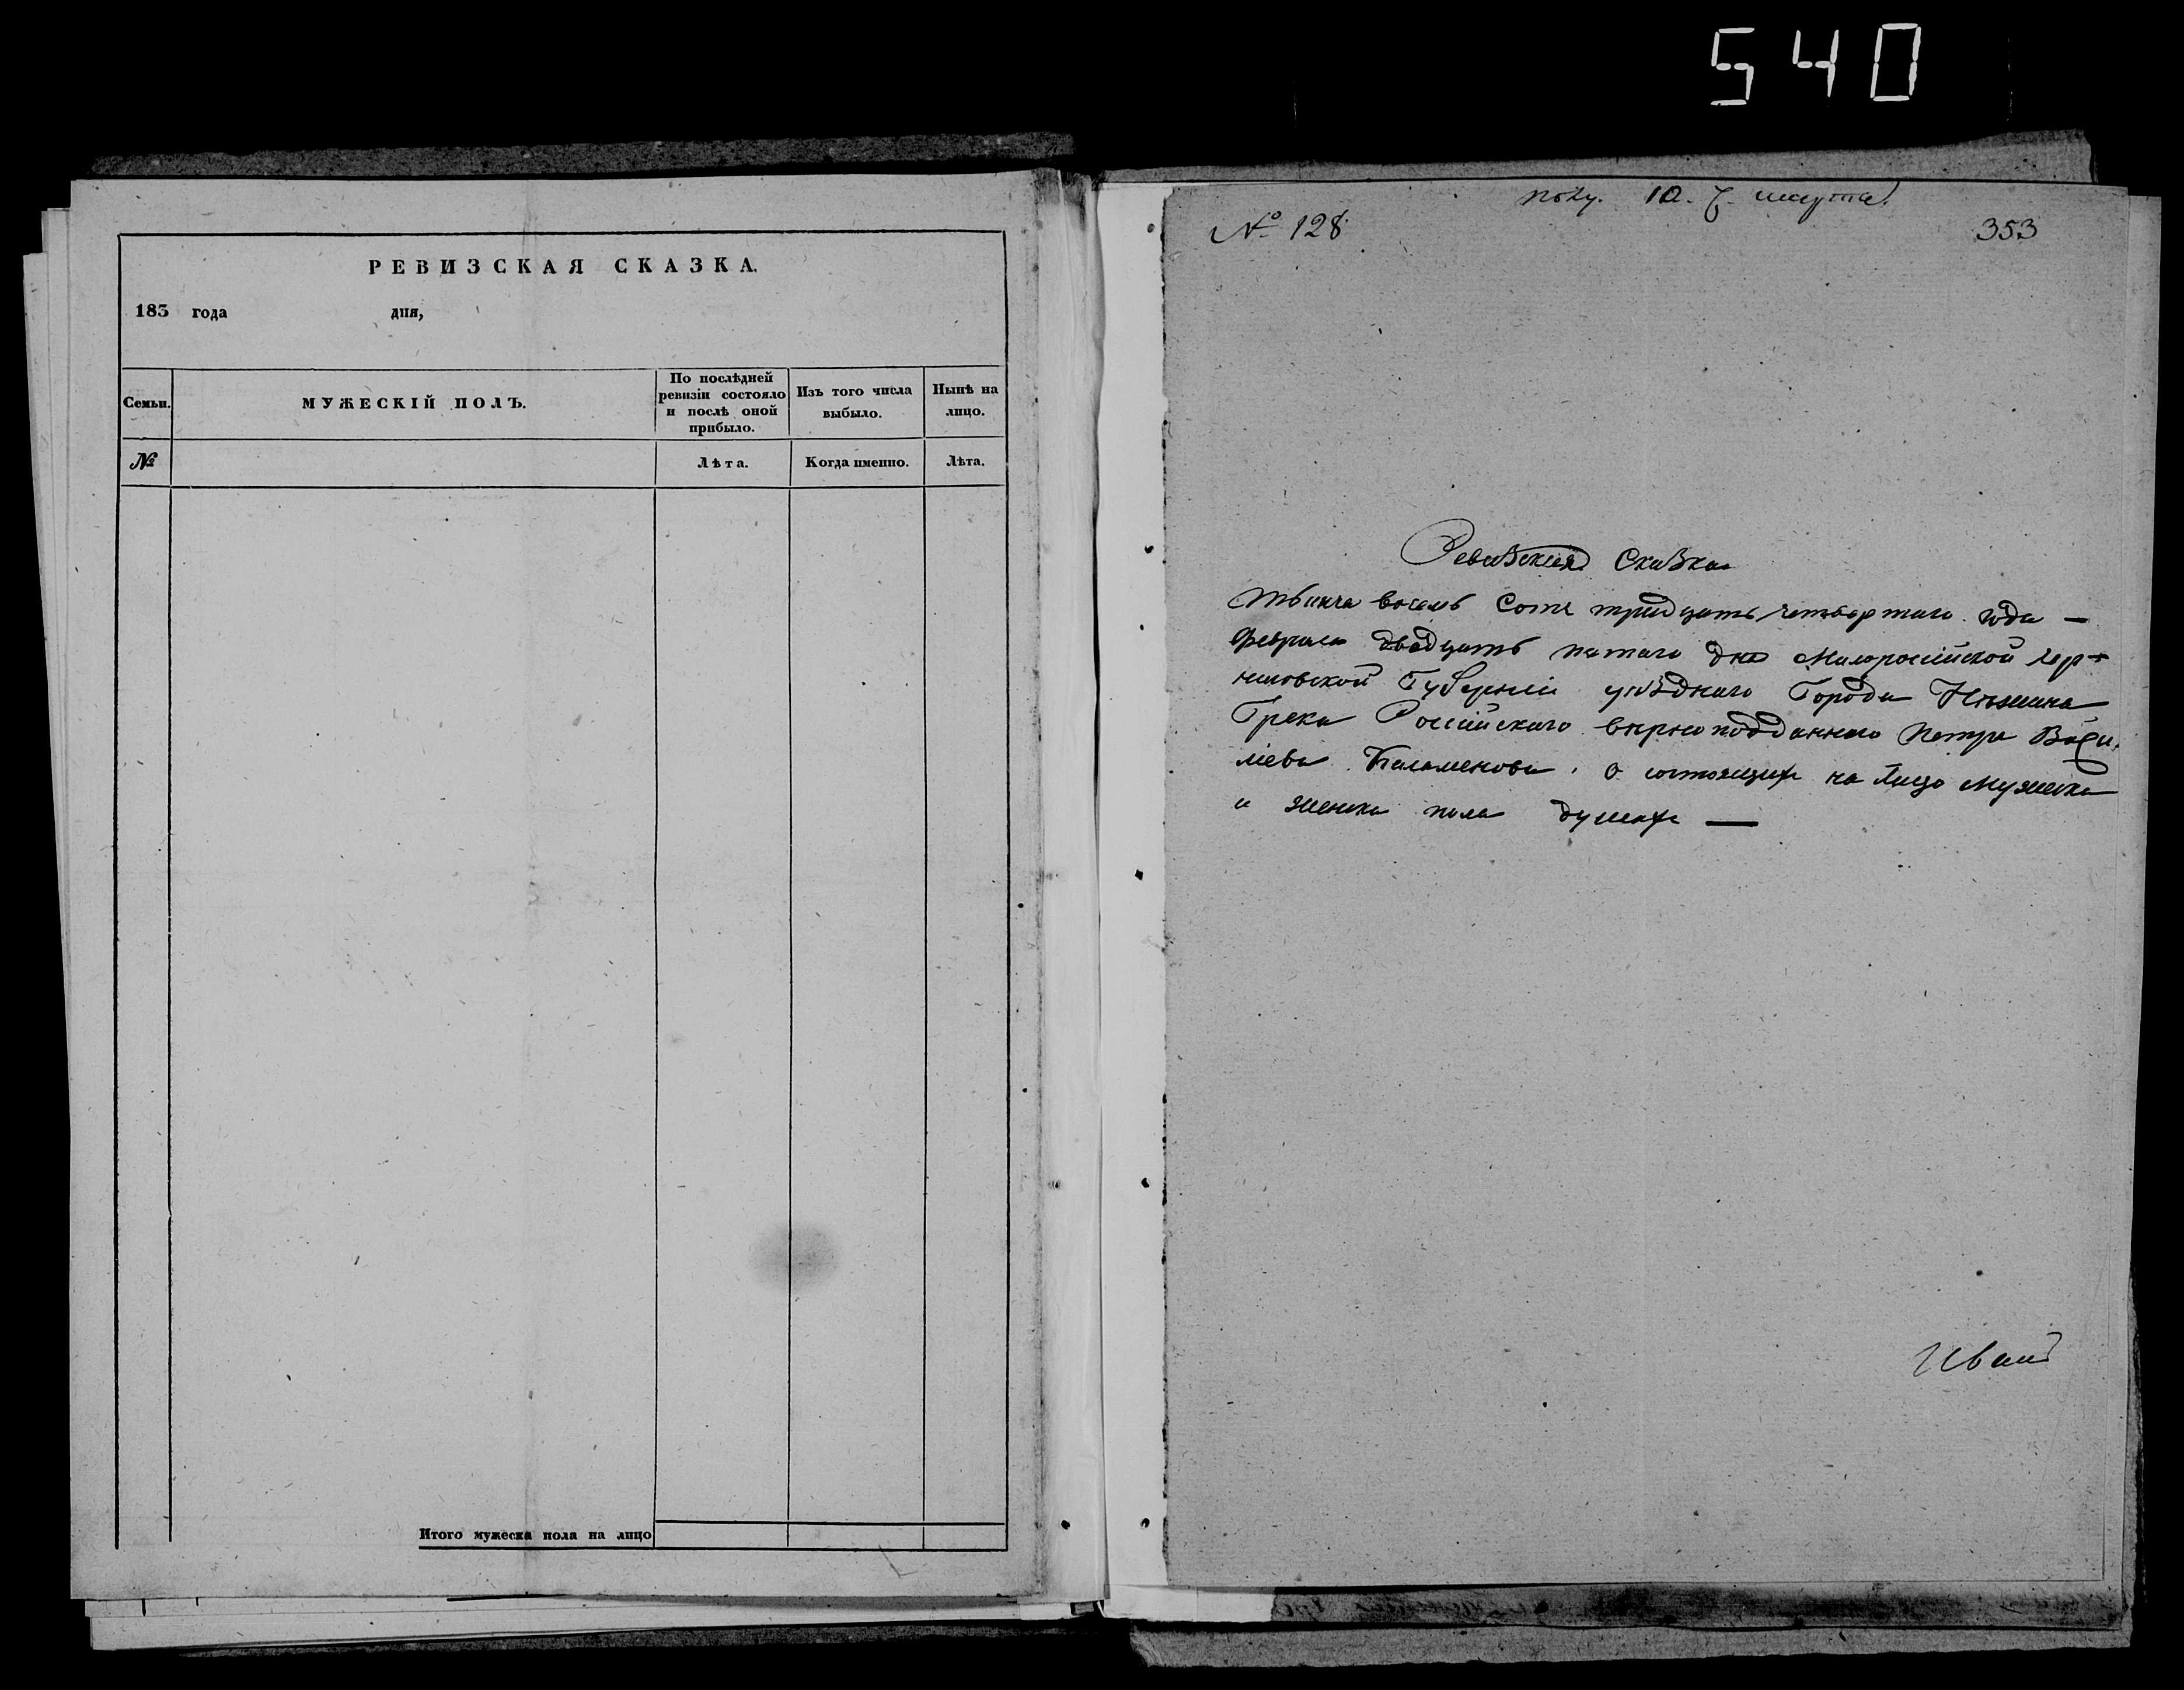 540
РЕВИЗСКАЯ СКАЗКА.
183 года дня,
Семьи.
МУЖЕСКІЙ ПОЛЪ.
По послѣдней
ревизіи состояло
и послѣ оной
прибыло.
Изъ того числа
выбыло.
Нынѣ на
лицо.
№
Лѣта.
Когда именно.
Лѣта.
Итого мужеска пола на лицо
10. марта
№ 128
353
Ревизская Сказка
Тысяча восемь сотъ тридцать четвертого года —
февраля двадцать пятаго дня Малоросійской Чер-
ниговской Губерніи уѣзднаго Города Нѣжина
Грека Россійскаго вѣрноподданнаго Петра Васи-
лiева о состоящихъ на лицо Мужеска
и женска пола душахъ —
Иванъ